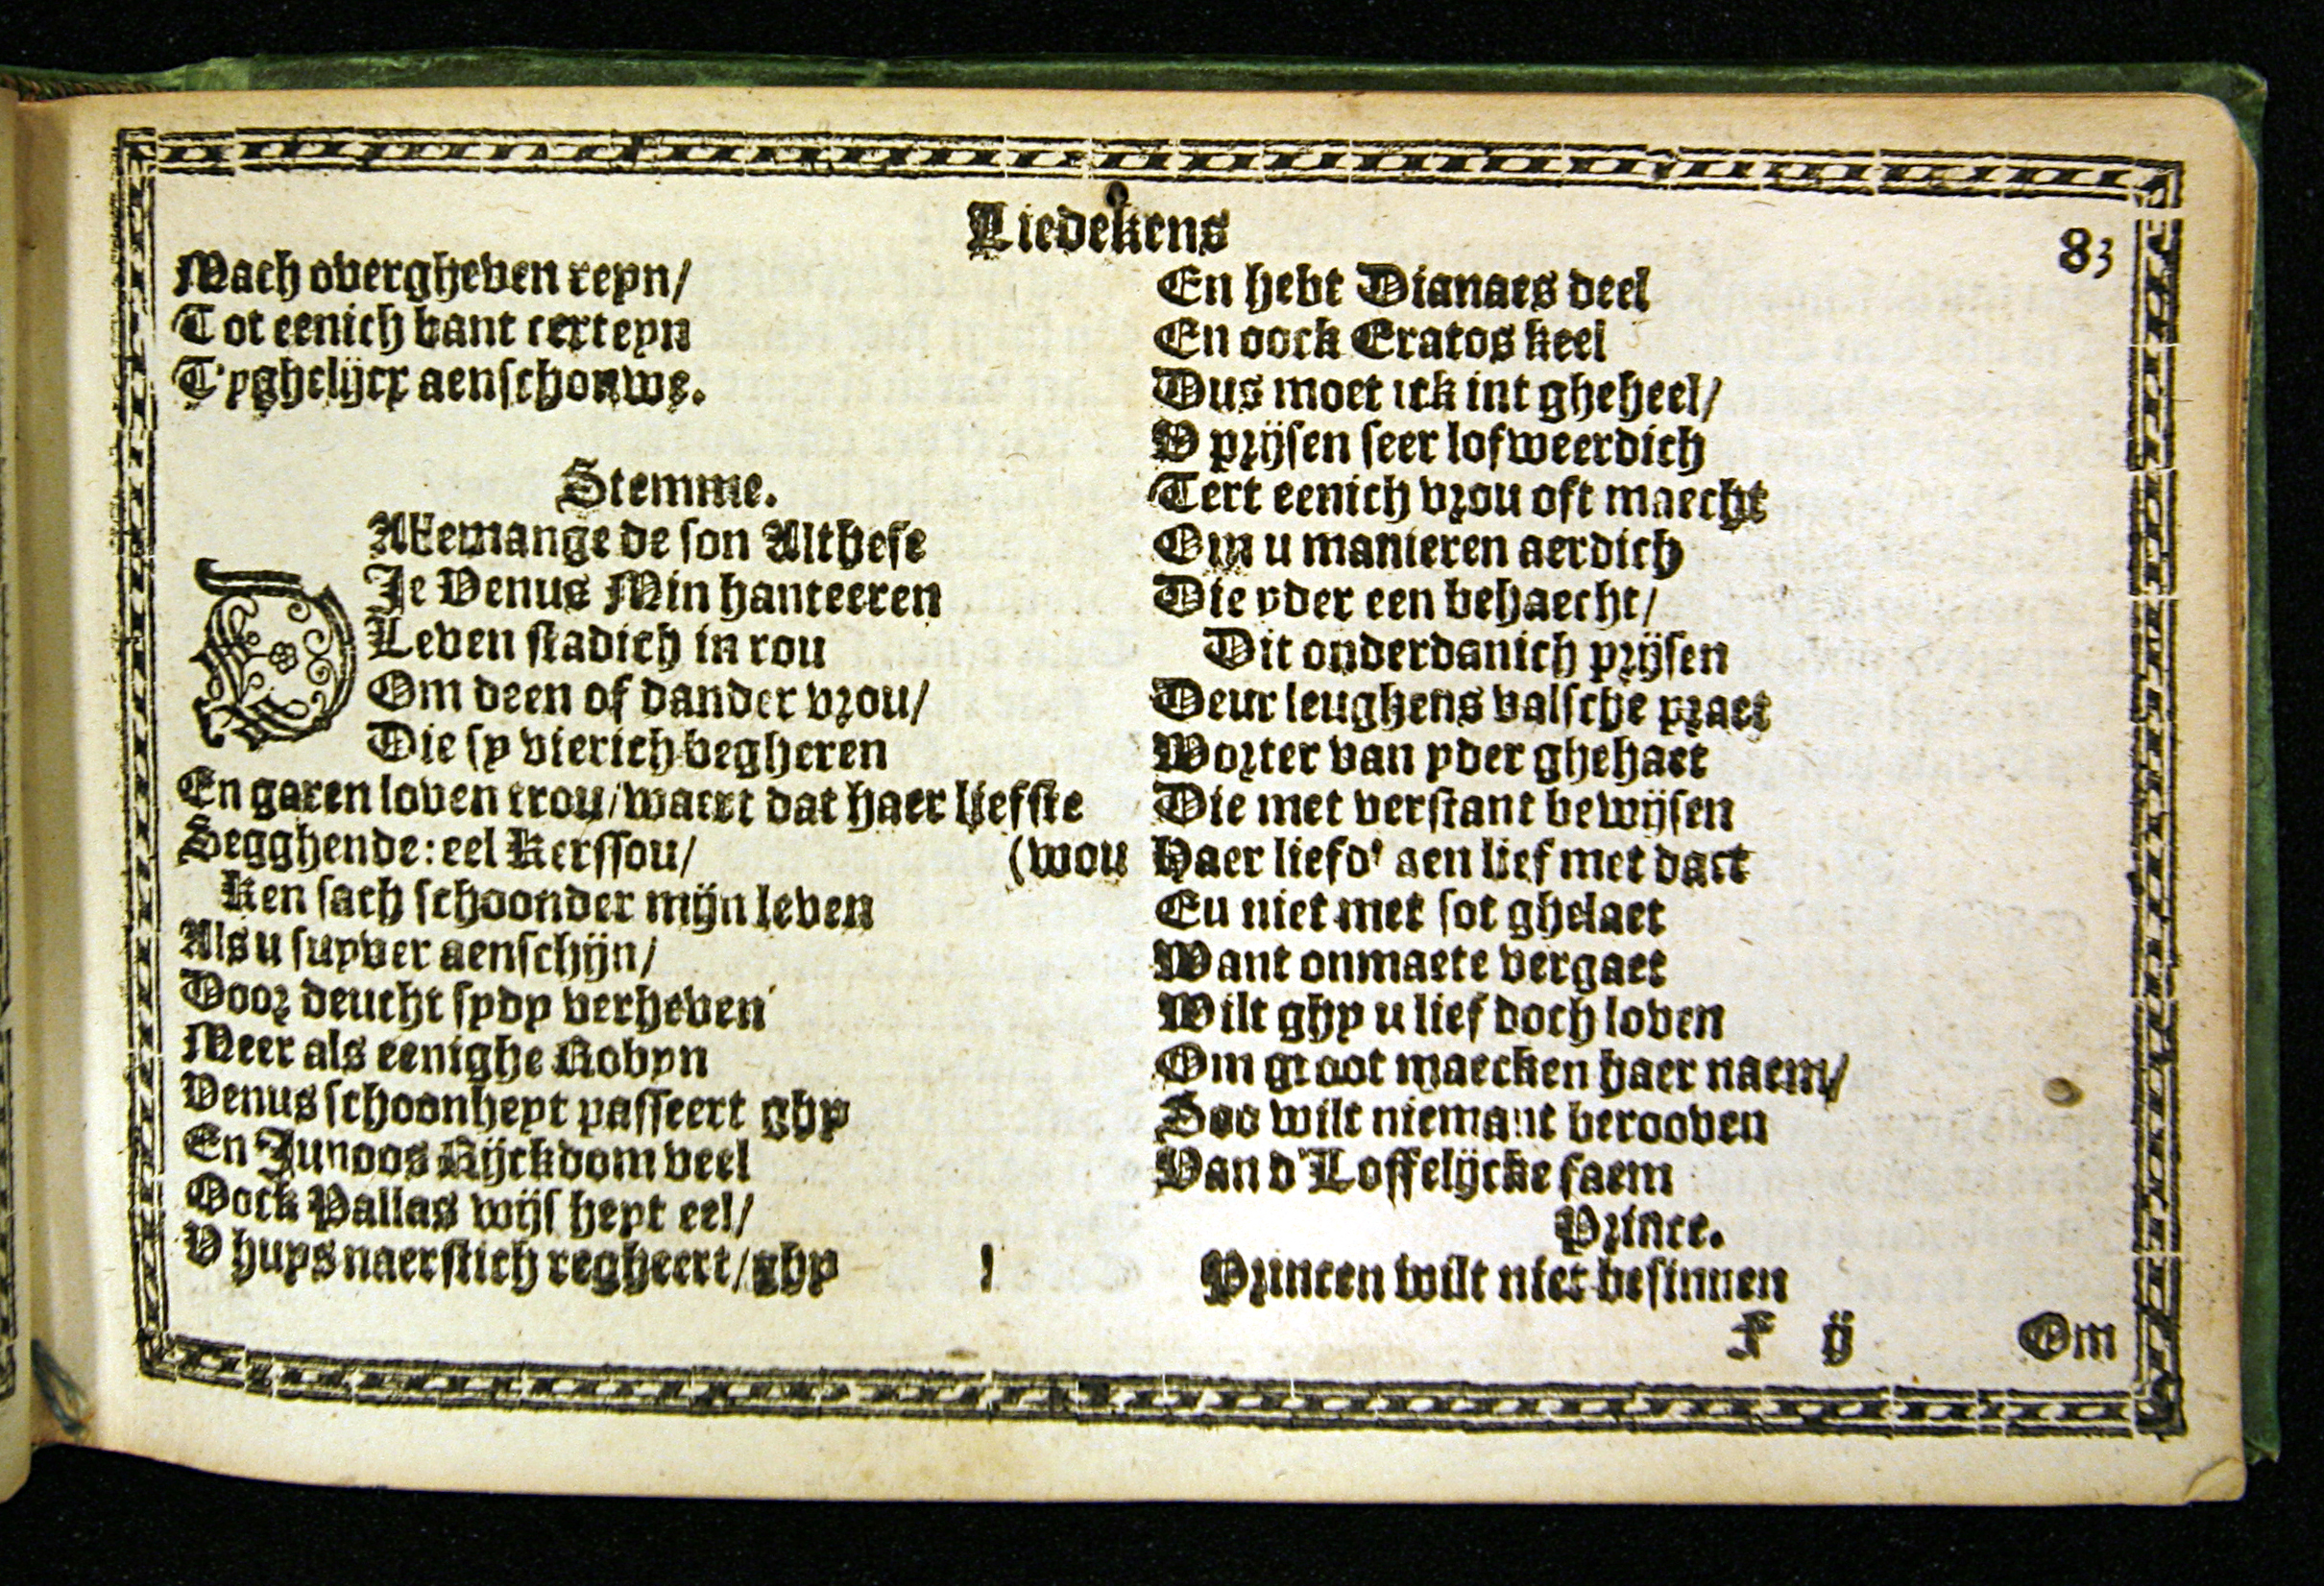 Liedekens
83
Mach overgheven reyn/
Tot eenich bant certeyn
T'yghelijcx aenschouwe.
Stemme.
Allemange de son Althese
DJe Venus Min hanteeren
Leven stadich in rou
Om deen of dander vrou/
Die sy vierich begheren
En garen loven trou/waert dat haer liefste
Segghende: eel Kerssou/ (wou
Ken sach schoonder mijn leven
Als u suyver aenschijn/
Door deucht sydy verheven
Meer als eenighe Robyn
Venus schoonheyt passeert ghy
En Junoos Rijckdom veel
Oock Pallas wijs heyt eel/
V huys naerstich regheert/ghy
En hebt Dianaes deel
En oock Eratos keel
Dus moet ick int gheheel/
V prijsen seer lofweerdich
Tert eenich vrou oft maecht
Om u manieren aerdich
Die yder een behaecht/
Dit onderdanich prijsen
Deur leughens valsche praet
Worter van yder ghehaet
Die met verstant bewijsen
Haer liefd' aen lief met daet
Eu niet met sot ghelaet
Want onmaete vergaet
Wilt ghy u lief doch loven
Om groot maecken haer naem/
Soo wilt niemant berooven
Van d'Loffelijcke faem
Prince.
Princen wilt niet besinnen
F ij Om